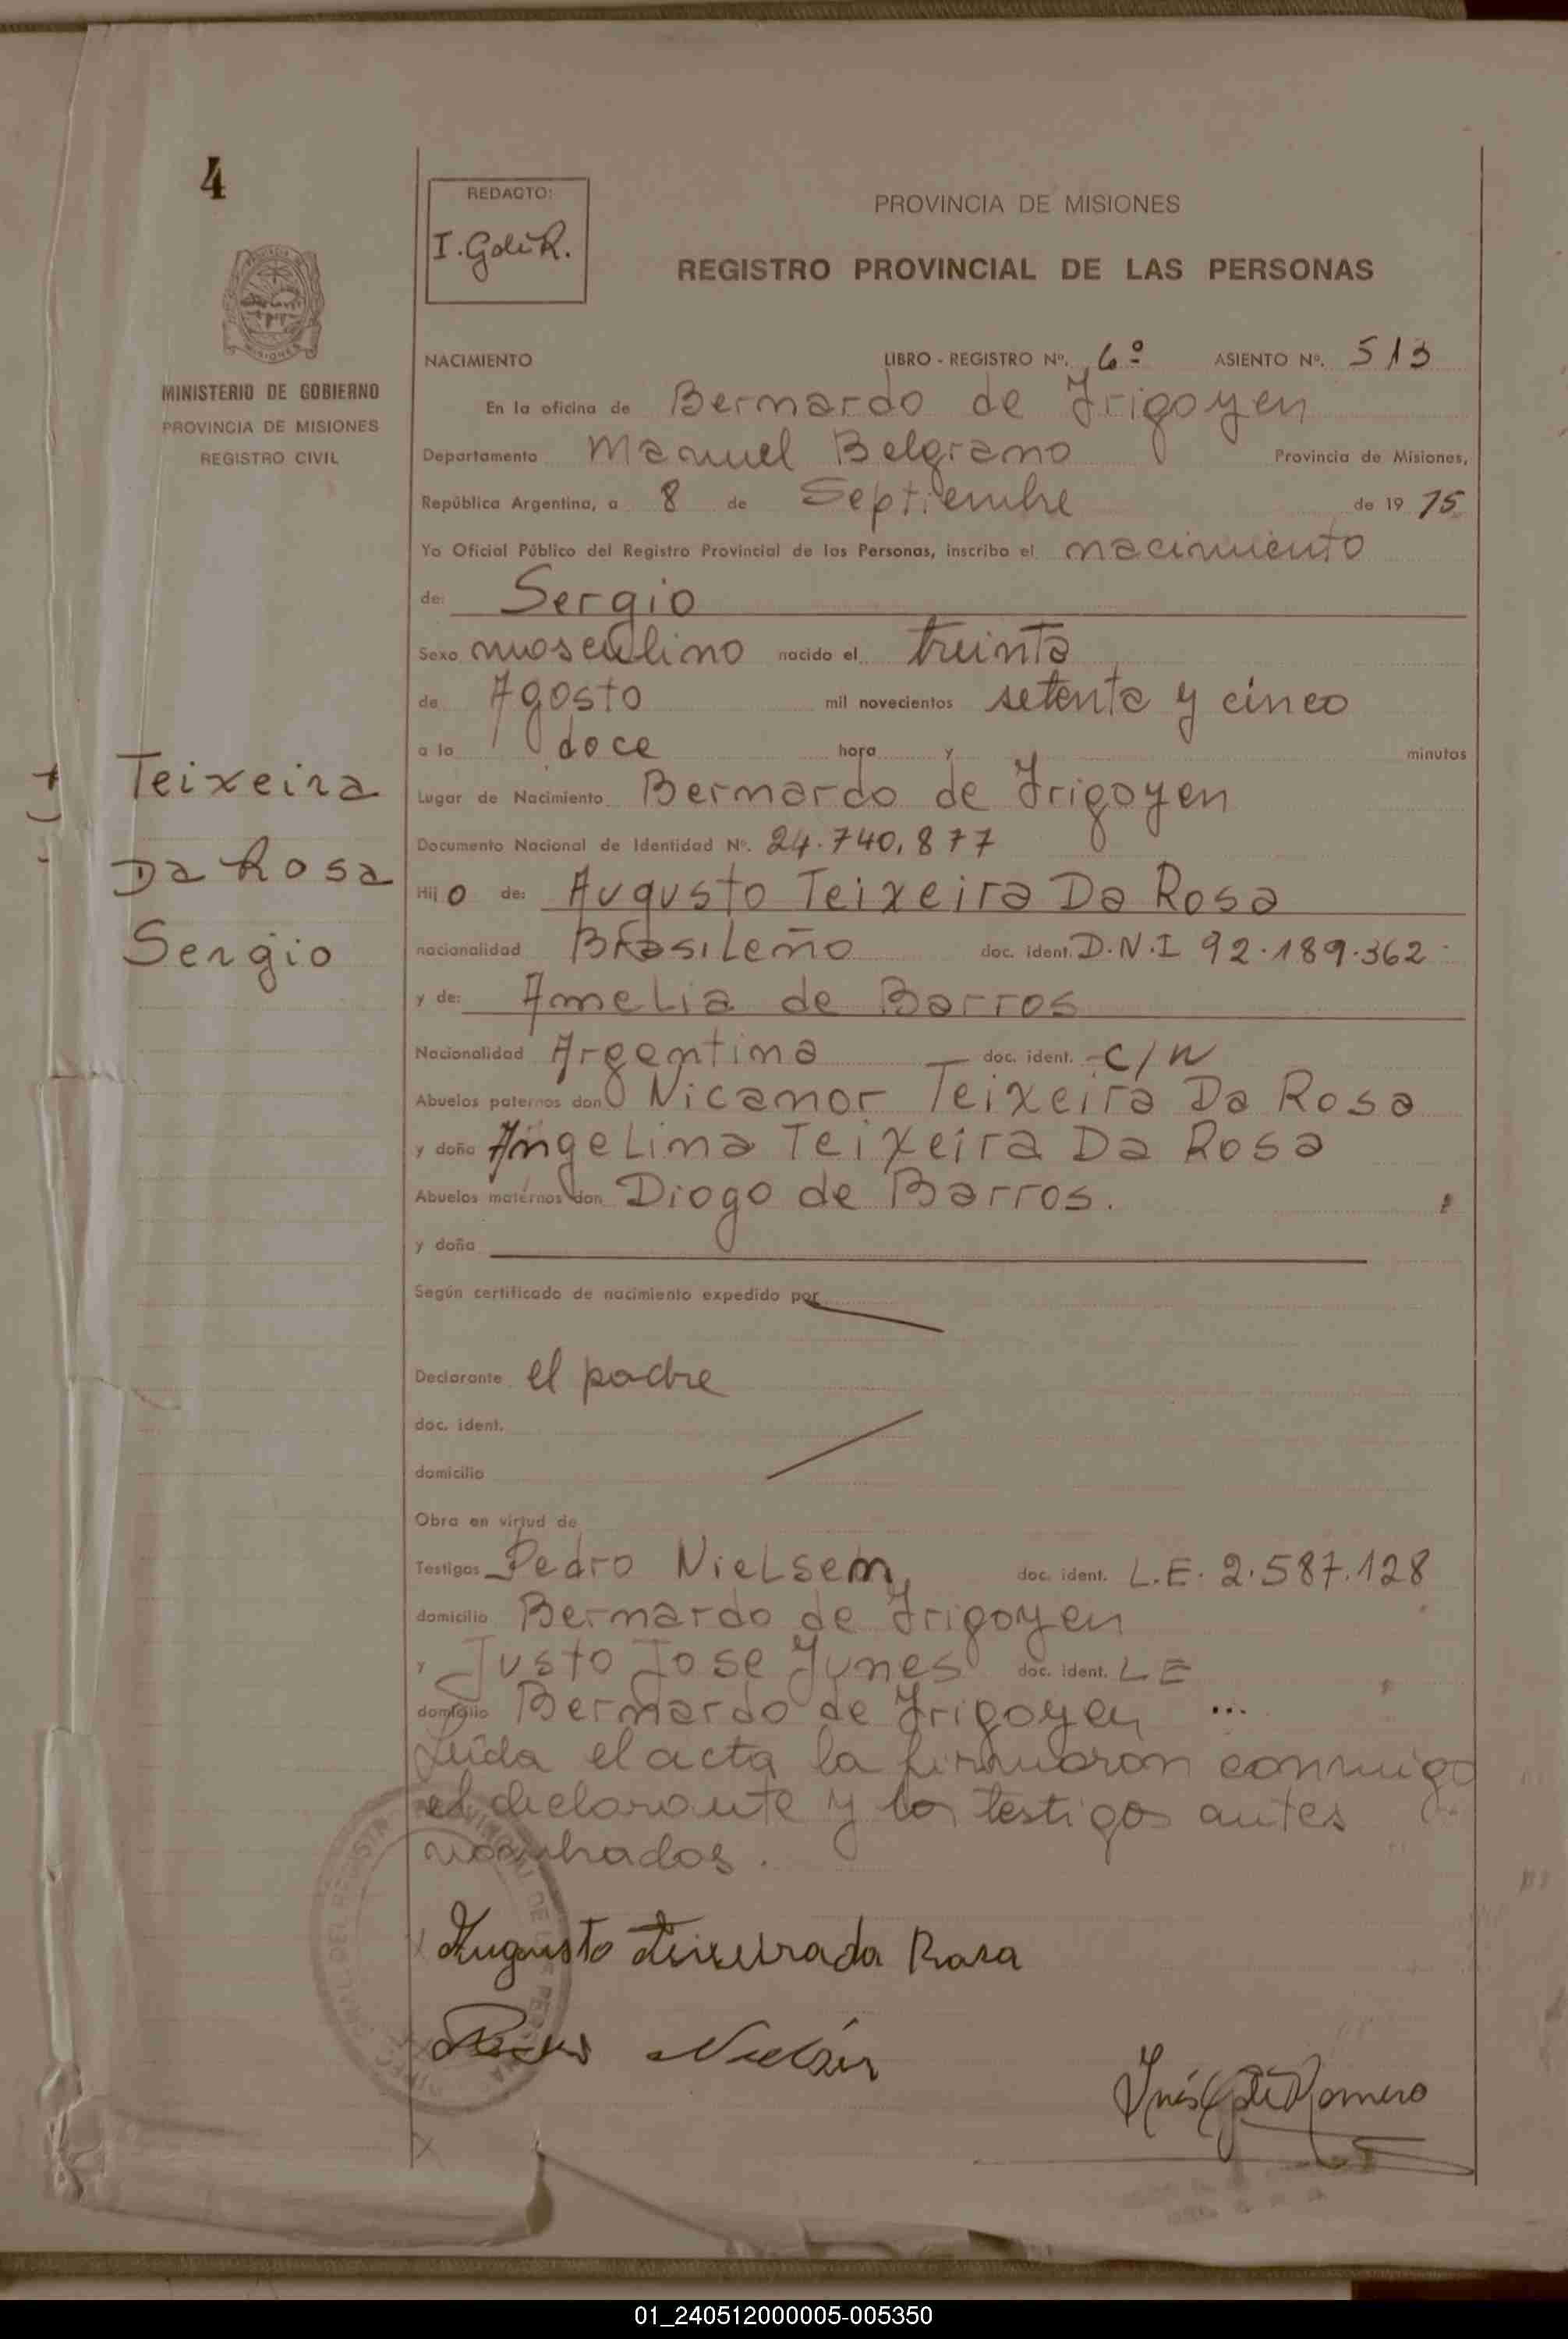 4
REDACTO:
I. Goli R.
PROVINCIA DE MISIONES
REGISTRO PROVINCIAL DE LAS PERSONAS
MINISTERIO DE GOBIERNO
PROVINCIA DE MISIONES
REGISTRO CIVIL
NACIMIENTO LIBRO - REGISTRO Nº. 6º ASIENTO Nº. 513
En la oficina de Bernardo de Irigoyen
Departamento Manuel Belgrano Provincia de Misiones,
República Argentina, a 8 de Septiembre de 19 75
Yo Oficial Público del Registro Provincial de las Personas, inscribo el nacimiento
de: Sergio
Sexo masculino nacido el treinta
de Agosto mil novecientos setenta y cinco
a la doce hora y minutos
Teixeira
Da Rosa
Sergio
Lugar de Nacimiento Bernardo de Irigoyen
Documento Nacional de Identidad Nº. 24.740.877
Hij o de: Augusto Teixeira Da Rosa
nacionalidad Brasileño doc. ident. D.N.I 92.189.362
y de: Amelia de Barros
Nacionalidad Argentina doc. ident. C/N
Abuelos paternos don Nicanor Teixeira Da Rosa
y doña Angelina Teixeira Da Rosa
Abuelos maternos don Diogo de Barros.
y doña
Según certificado de nacimiento expedido por
Declarante el padre
doc. ident.
domicilio
Obra en virtud de
Testigos Pedro Nielsem doc. ident. L.E. 2.587.128
domicilio Bernardo de Irigoyen
y Justo Jose Junes doc. ident. LE
domicilio Bernardo de Irigoyen ...
Leida el acta la firmaron conmigo
el declarante y los testigos antes
nombrados.
Augusto Teixeirada Rosa
Nielsen
Inés Goli Romero
01_240512000005-005350